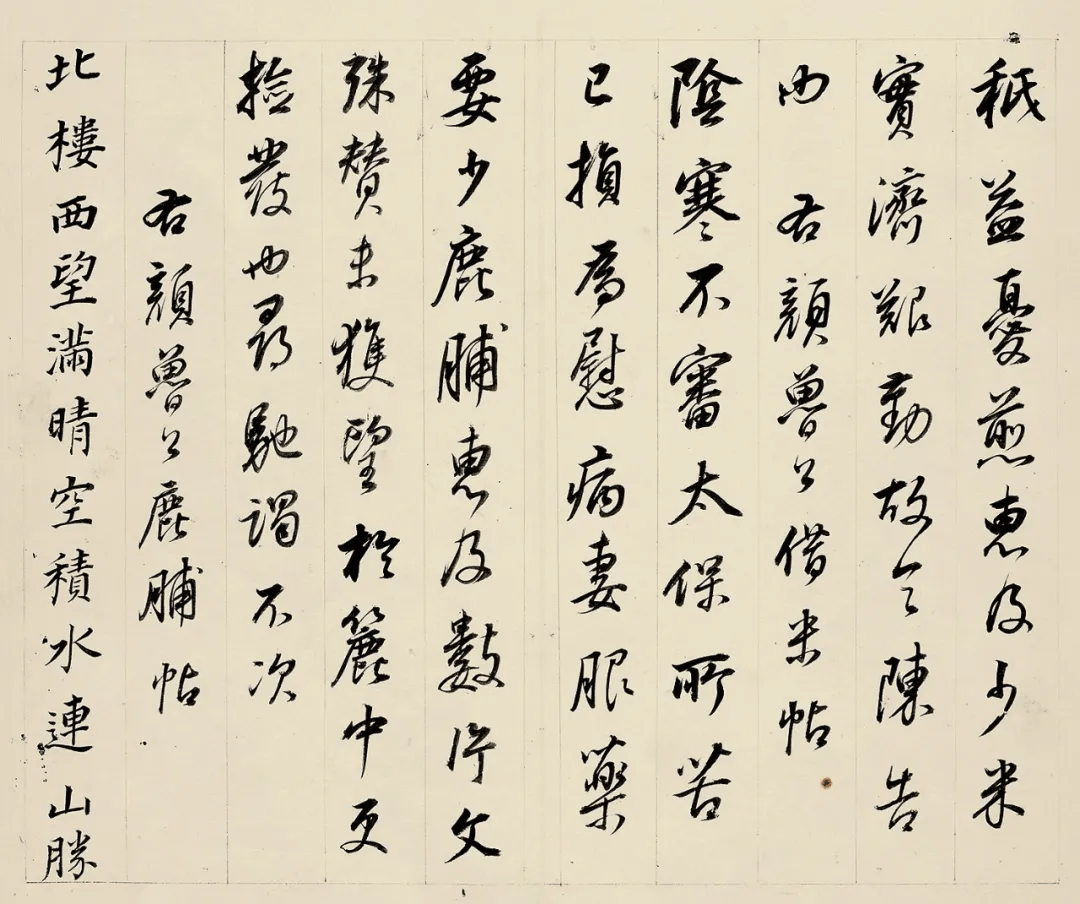 秖益憂煎惠及少米
實濟艱勤故令陳告
也　右顏魯公借米帖
陰寒不審太保所苦
已損為慰病妻服藥
要少鹿脯惠及數片文
殊贊未獲望於簏中更
撿發也尋馳謁不次
右顏魯公鹿脯帖
北樓西望滿晴空積水連山勝